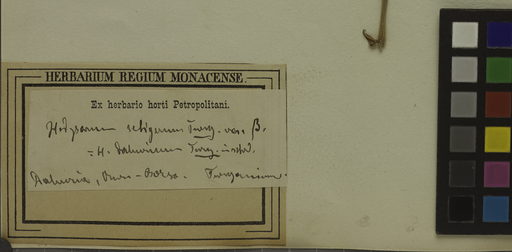 HERBARIUM REGIUM MONACENSE.
Ex herbario horti Petropolitani.
Hedysarum setigerum Turcz. var. β.
= H. dahuricum Turcz. in sched.
Dahuria, Onon-Borsa. Turczaninow.